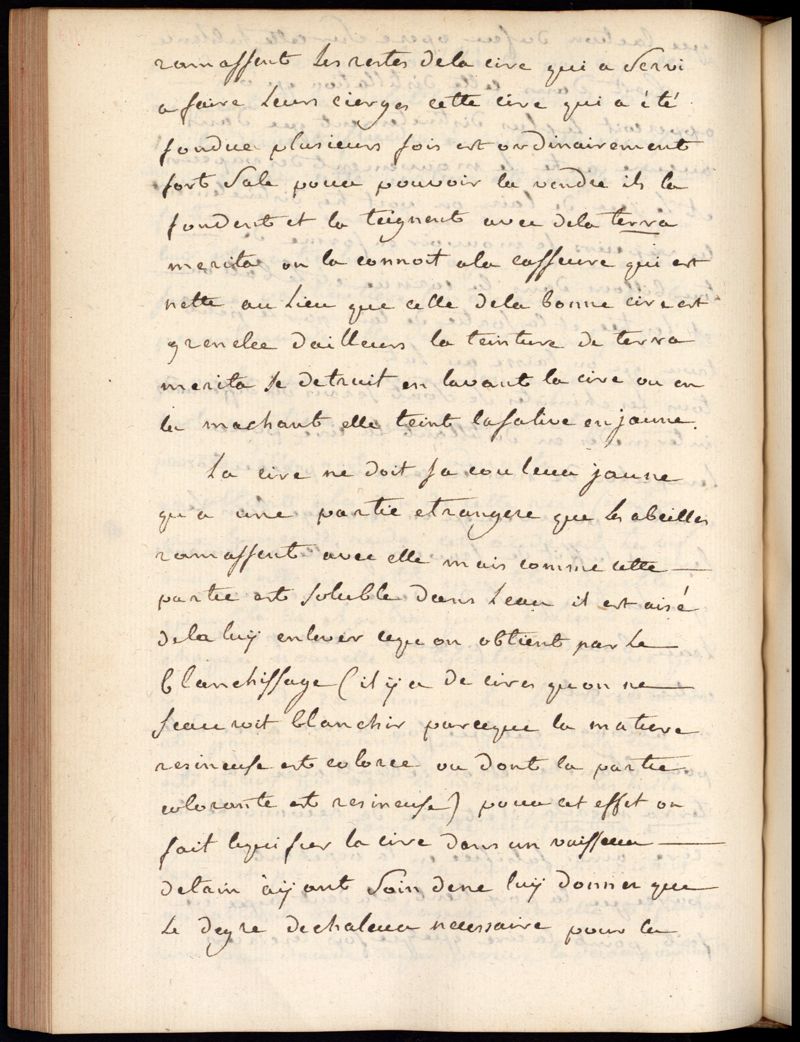 ramassent les restes dela cire qui a servi
a faire leurs cierges cette cire qui a été
fondue plusieurs fois est ordinairement
fort sale pour pouvoir la vendre ils la
fondent et la teignent avec dela terra
merita on la connoit ala cassure qui est
nette au lieu que celle dela bonne cire est
grenelee dailleurs la teinture de terra
merita se detruit en lavant la cire ou en
la machant elle teint lasalive enjaune.
La cire ne doit sa couleur jaune
qu'a une partie etrangere que les abeilles
ramassent avec elle mais comme cette
partie est soluble dans leau il est aisé
dela luÿ enlever cequ'on obtient par le
blanchissage (il ÿ a de cires quon ne
scauroit blanchir parceque la matiere
resineuse est coloree ou dont la partie
colorante est resineuse) pour cet effet on
fait liquifier la cire dans un vaisseau
detain aÿant soin dene luÿ donner que
le degre dechaleur necessaire pour la